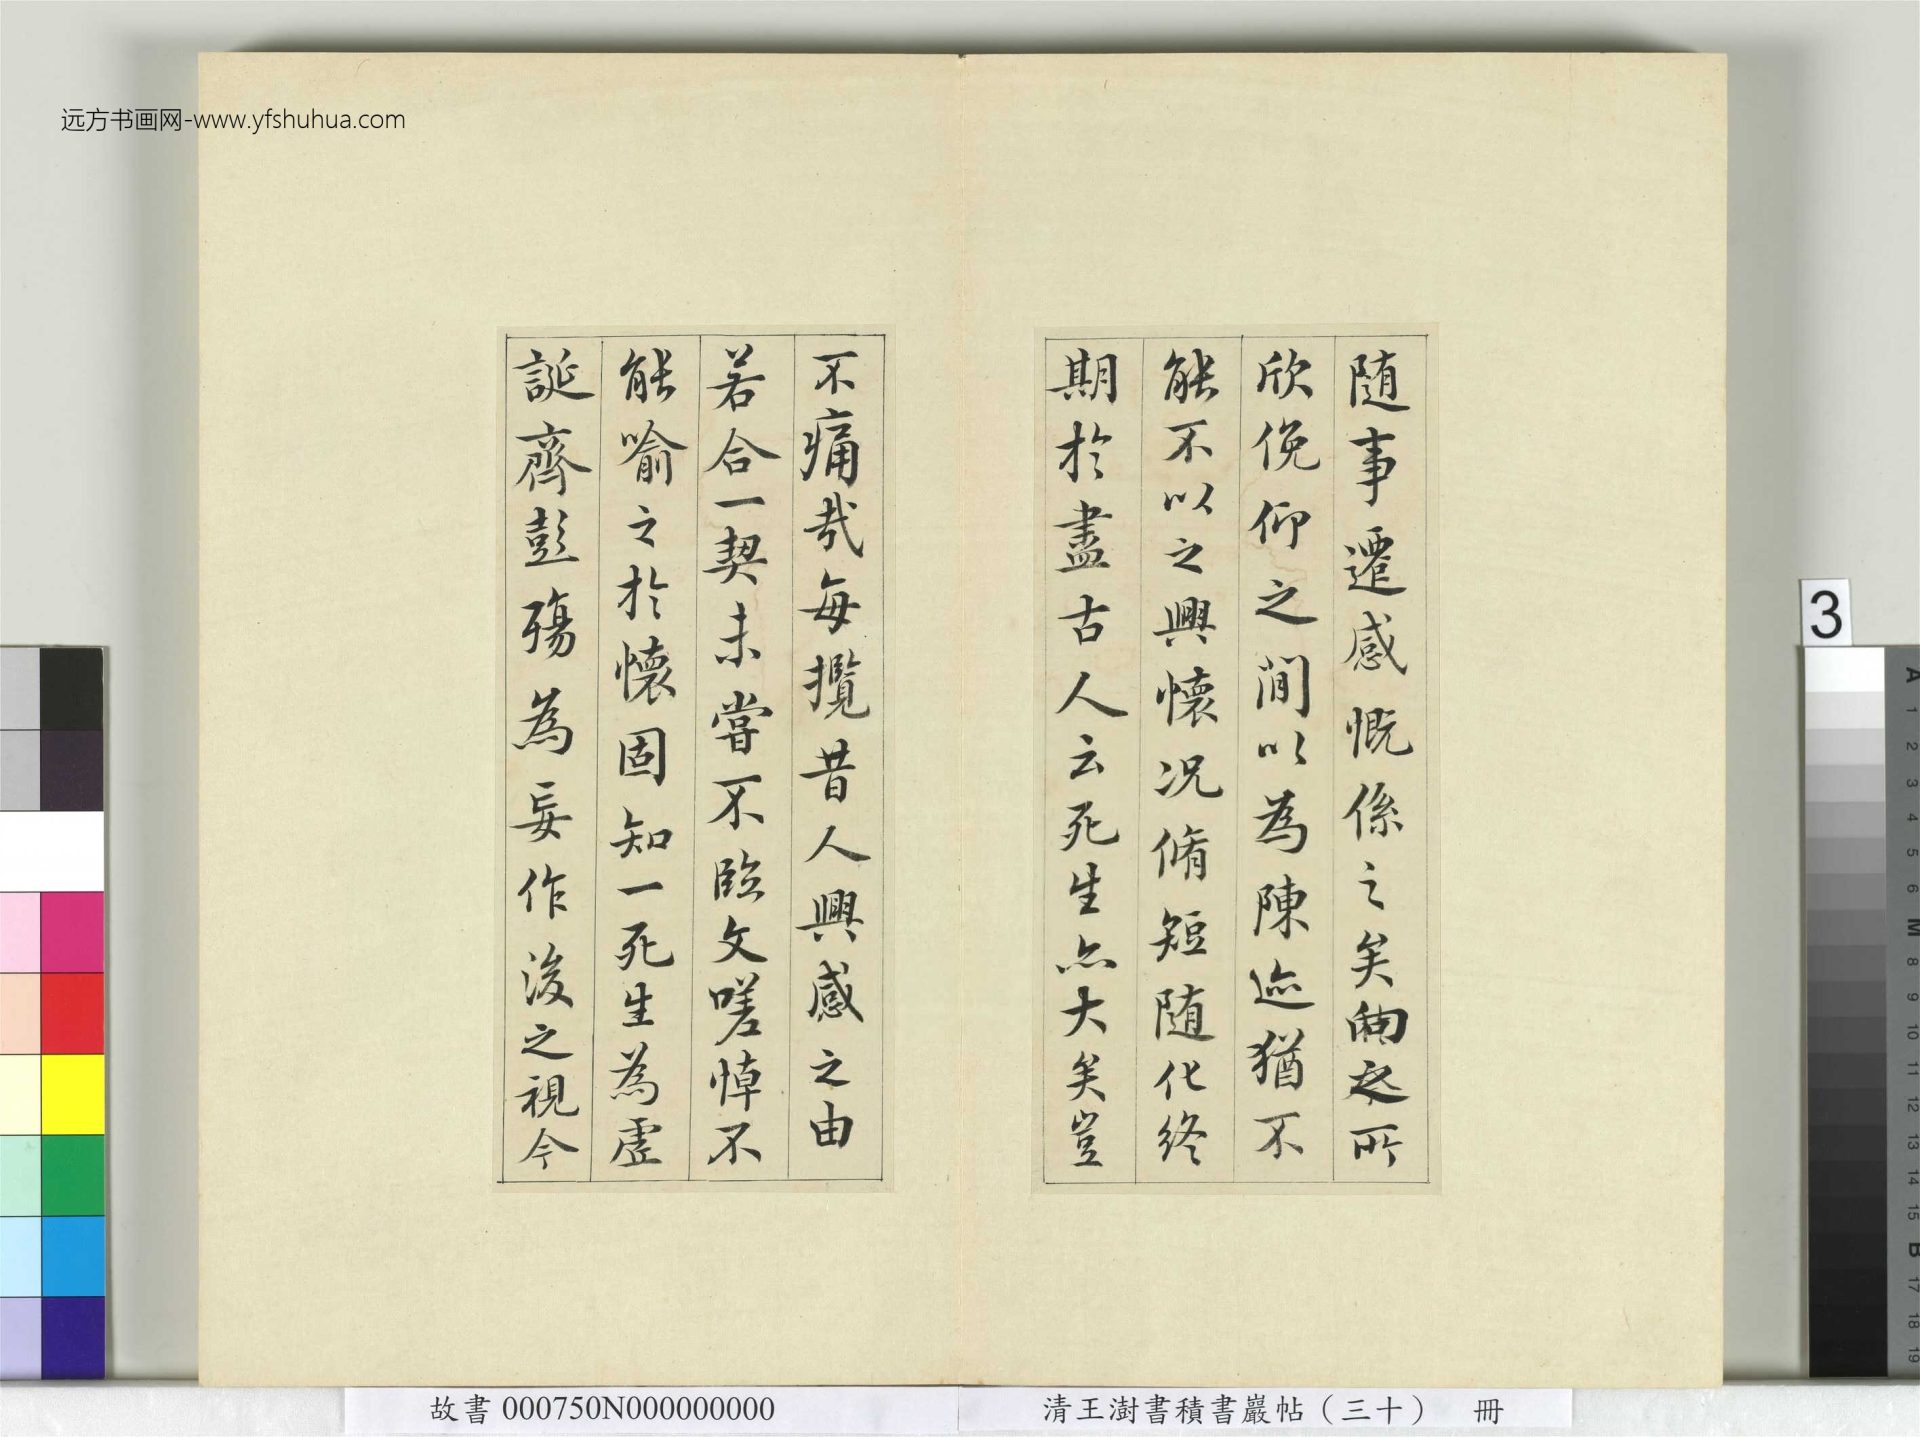 远方书画网-www.yfshuhua.com
随事遷感慨係之矣向之所
欣俛仰之閒以為陳迹猶不
能不以之興懷況脩短随化終
期於盡古人云死生亦大矣豈
不痛哉每攬昔人興感之由
若合一契未嘗不臨文嗟悼不
能喻之於懷固知一死生為虛
誕齊彭殤為妄作後之視今
3
A
1
2
3
4
5
6
M
8
9
10
11
12
13
14
15
B
17
18
19
故書 000750N000000000
清王澍書積書巖帖（三十） 冊